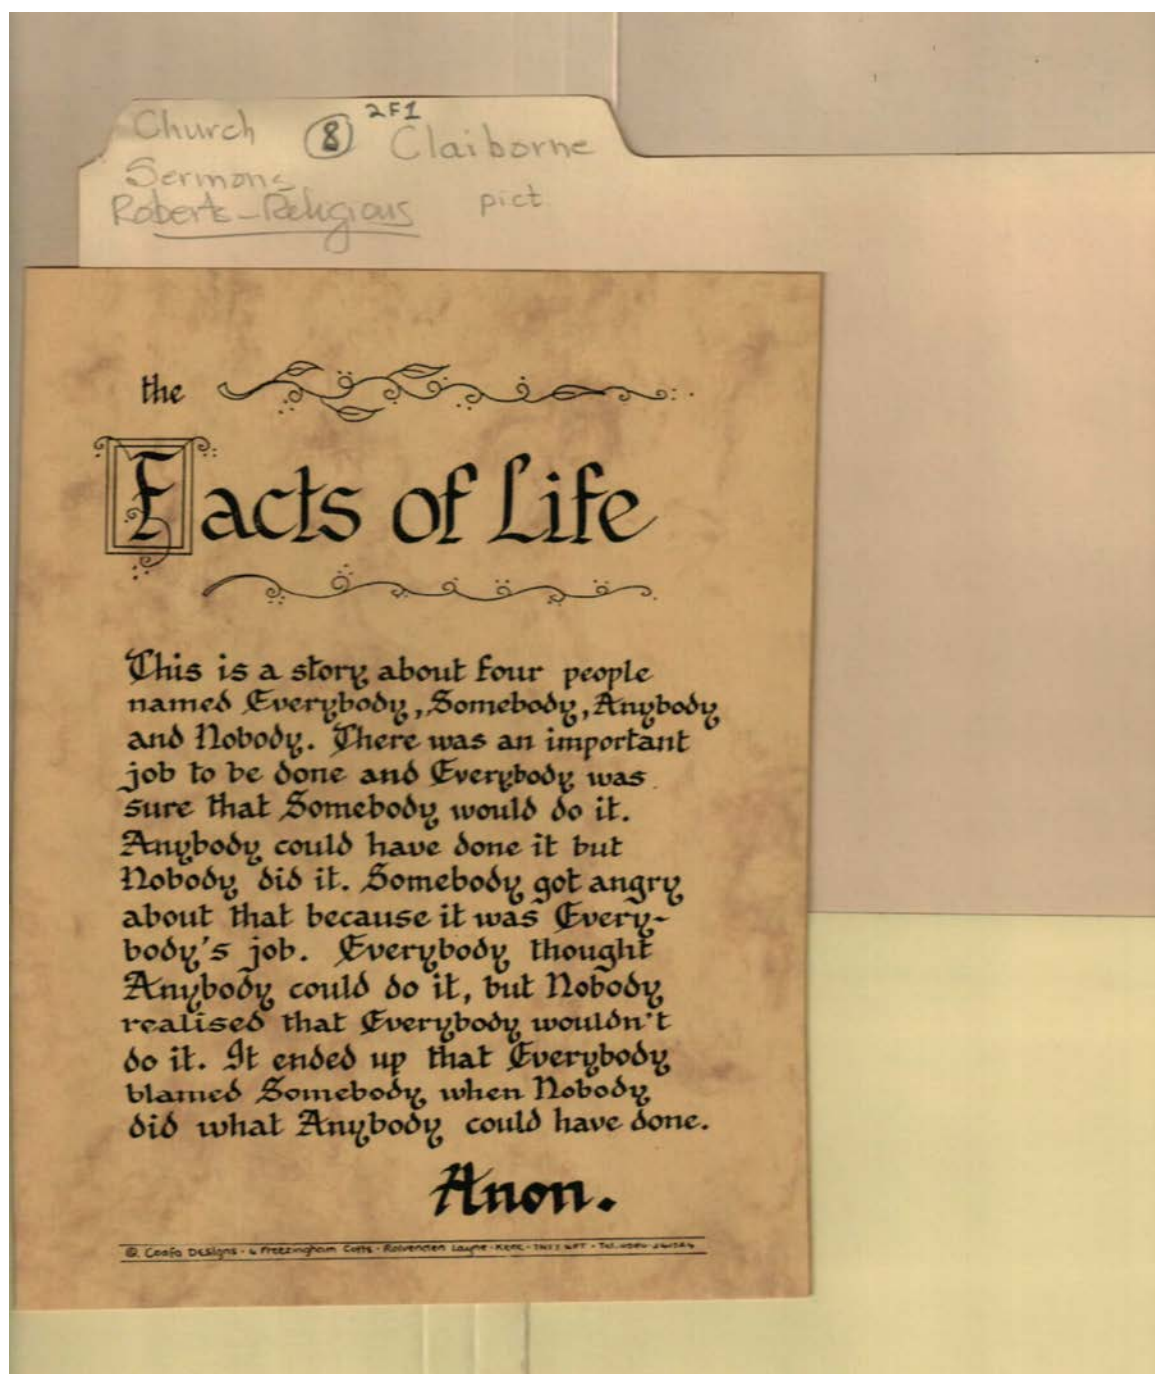 Church 8 2F1 Claiborne
Sermons
Roberts-Religious pict
the
Facts of Life
This is a story about four people
named Everybody, Somebody, Anybody
and Nobody. There was an important
job to be done and Everybody was
sure that Somebody would do it.
Anybody could have done it but
Nobody did it. Somebody got angry
about that because it was Every-
body's job. Everybody thought
Anybody could do it, but Nobody
realised that Everybody wouldn't
do it. It ended up that Everybody
blamed Somebody when Nobody
did what Anybody could have done.
Anon.
Designs · 6 Freezingham Cotts · Rolvenden Layne · Kent ·